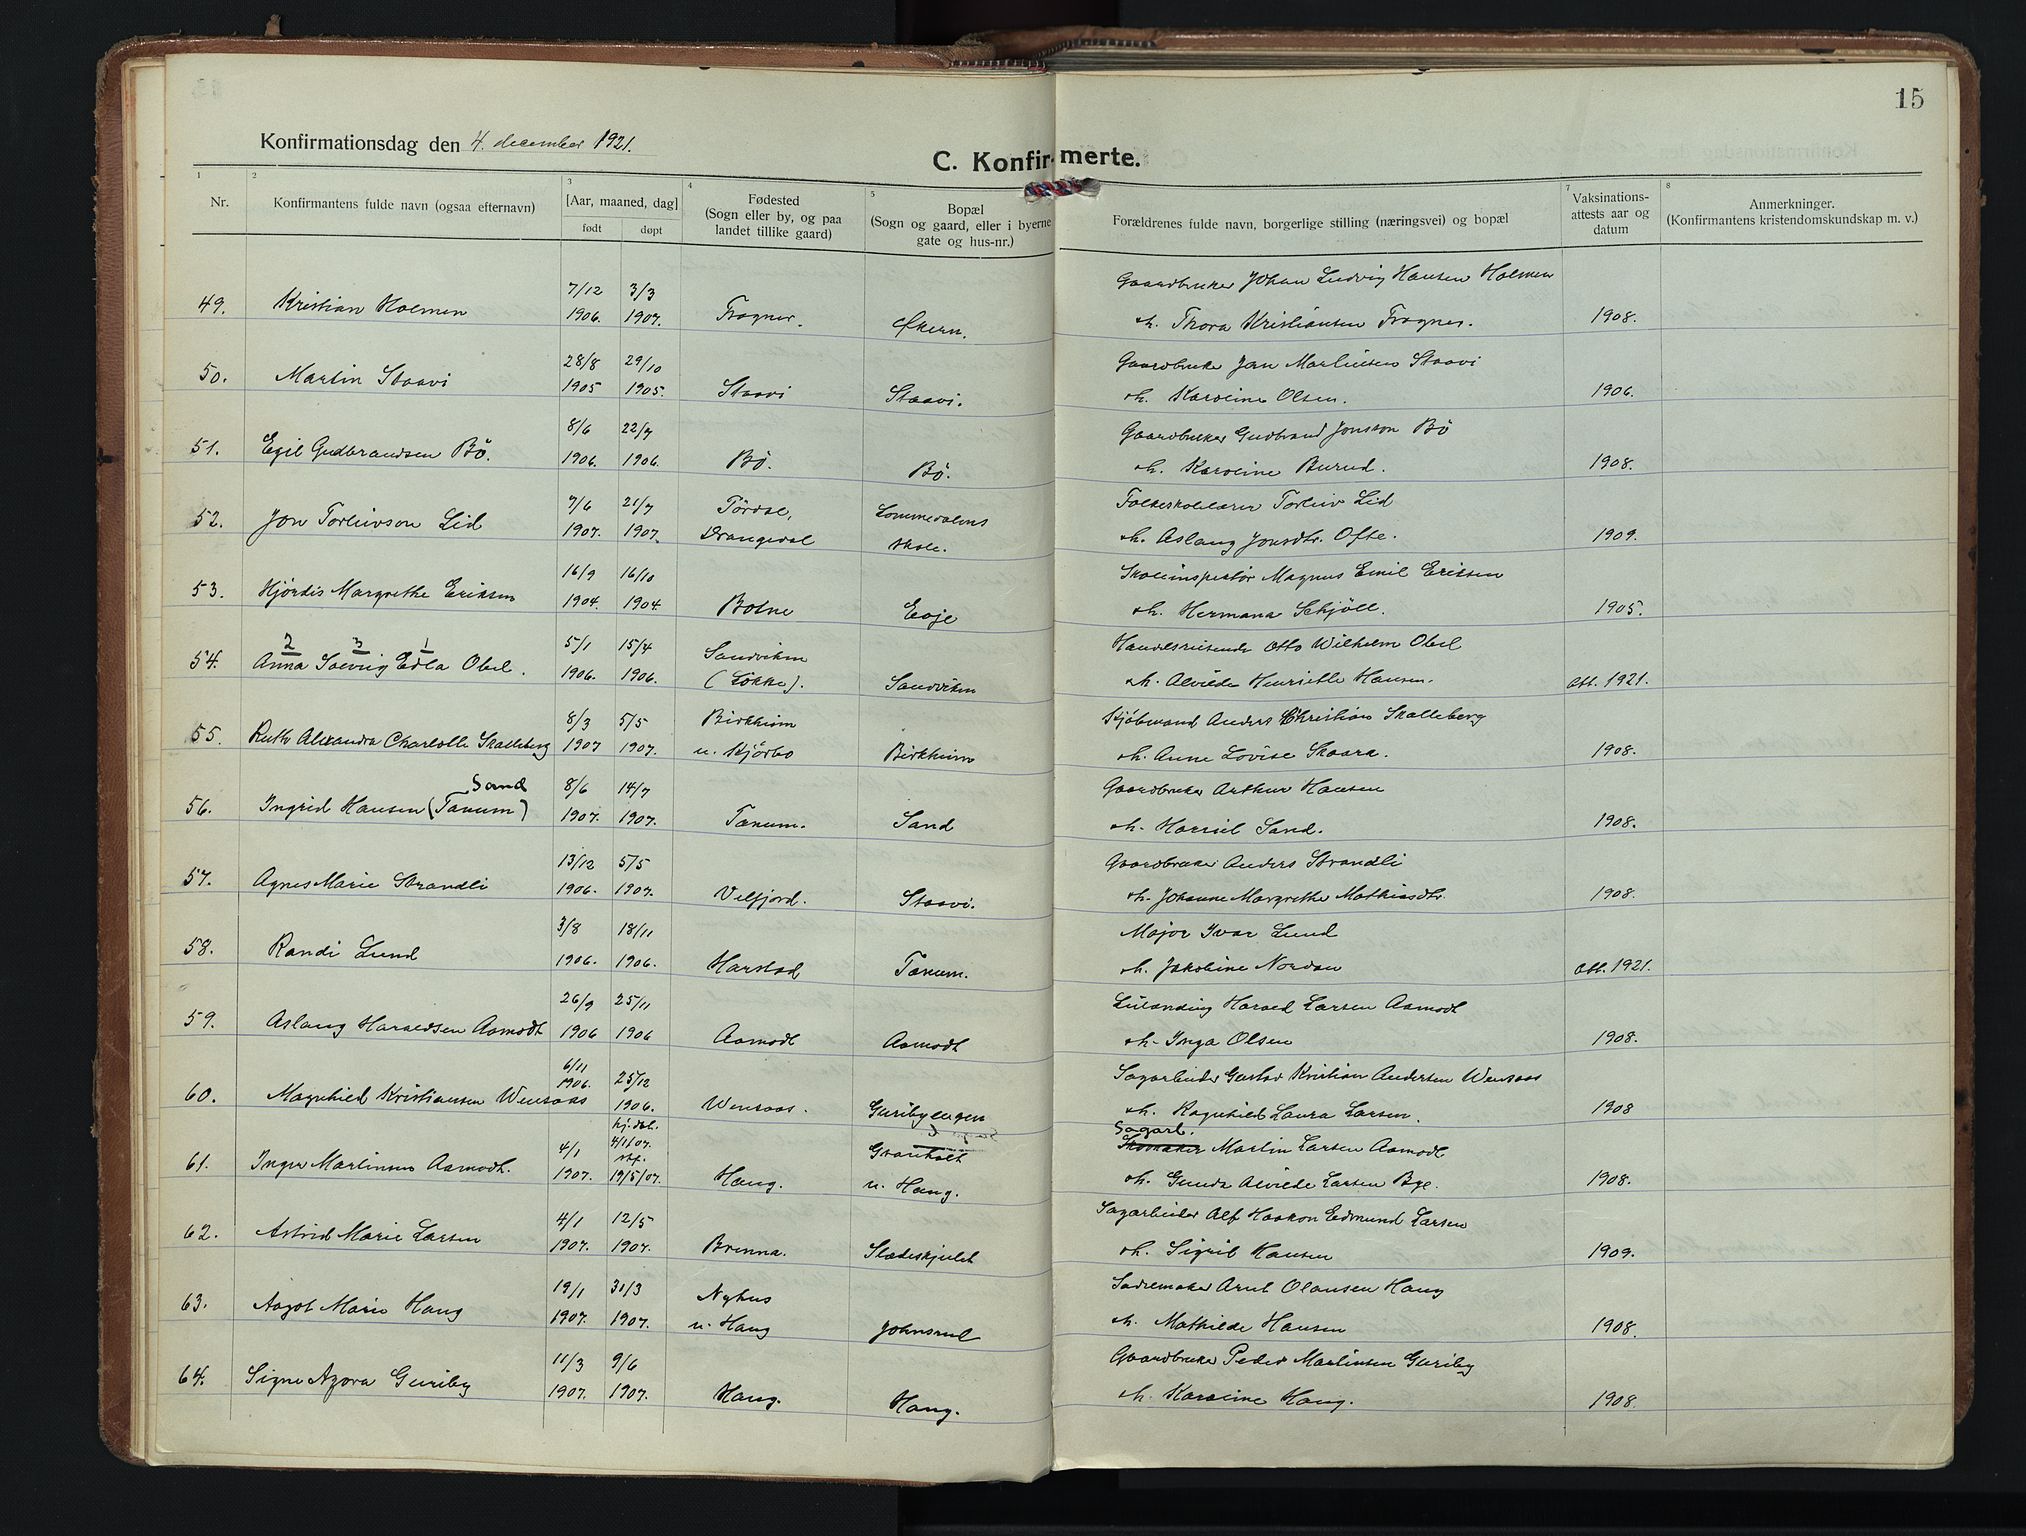 15
Konfirmationsdag den 4. december 1921.
C. Konfirmerte.
1 2 3 4 5 7 8
Nr.
Konfirmantens fulde navn (ogsaa efternavn)
[Aar, maaned, dag]
født døpt
Fødested
(Sogn eller by, og paa
landet tillike gaard)
Bopæl
(Sogn og gaard, eller i byerne
gate og hus-nr.)
Forældrenes fulde navn, borgerlige stilling (næringsvei) og bopæl
Vaksinations-
attests aar og
datum
Anmerkninger.
(Konfirmantens kristendomskundskap m. v.)
7/12 3/3 Gaardbruker Johan Ludvig Hansen Holmen
49. Kristian Holmen 1906. 1907. Fragner. Økern. o.h. Thora Kristiansen Fragner. 1908.
28/8 29/10 Gaardbruker Jan Martinsen Staavi
50. Martin Staavi 1905 1905. Staavi Staavi. o.h. Karoline Olsen. 1906.
8/6 22/7 Gaardbruker Gudbrand Jonsson Bö
51. Egil Gudbrandsen Bö. 1906. 1906. Bö. Bö. o.h. Karoline Burud. 1908.
7/6 21/7 Tördal, Lommedalens Folkeskolelærer Torleiv Lid
52. Jon Torleivson Lid 1907. 1907. Drangedal skole. o.h. Aslaug Jonsdtr. Ofte. 1909.
16/9 16/10 Skoleinspektör Magnus Emil Eriksen
53. Hjördis Margrethe Eriksen 1904. 1904 Botne Evje o.h. Hermana Schjöll. 1905.
2 3 1 5/1 15/4 Sandviken Handelsreisende Otto Wilhelm Obel
54. Anna Solveig Edla Obel. 1906. 1906. (Løkke). Sandviken o.h. Alvilde Henriette Hansen. Att. 1921.
8/3 5/5 Birkheim Kjöbmand Anders Christian Skalleberg
55. Ruth Alexandra Charlotte Skalleberg 1907 1907. u. Kjörbo Birkheim o.h. Anne Lovise Skaara. 1908.
Sand 8/6 14/7 Gaardbruker Arthur Hansen
56. Ingrid Hansen (Tanum) 1907. 1907. Tanum. Sand o.h. Sand. 1908.
13/12 5/5 Gaardbruker Anders Strandli
57. Agnes Marie Strandli 1906. 1907. Velfjord. Staavi. o.h. Johanne Margrethe Mathiasdtr. 1908.
3/8 18/11 Major Ivar Lund
58. Randi Lund 1906. 1906. Harstad Tanum. o.h. Jakobine Nordan Att. 1921.
26/9 25/11 Harald Larsen Aamodt
59. Aslaug Haraldsen Aamodt 1906 1906 Aamodt Aamodt o.h. Inga Olsen 1908.
6/11 25/12 Sagarbeider Gustav Kristian Andersen Wensaas
60. Magnhild Kristiansen Wensaas 1906. 1906. Wensaas. Guribyengen o.h. Ragnhild Laura Larsen. 1908
4/1 hj.dbt. 4/1/07. Granholt Sagarb. Martin Larsen Aamodt
61. Inger Martinsen Aamodt. 1907. stf. 19/5/07. Haug. u. Haug. o.h. Gunda Alvilde Larsen Bye. 1908.
4/1 12/5 Sagarbeider Alf Haakon Edmund Larsen
62. Astrid Marie Larsen 1907. 1907. Brenna. Slædeskjulet o.h. Sigrid Hansen 1909.
19/1 31/3 Nyhus Sadlemaker Arnt Olausen Haug
63. Aagot Marie Haug 1907. 1907. u. Haug Johnsrud o.h. Mathilde Hansen 1908.
11/3 9/6 Gaardbruker Peder Martinsen Guriby
64. Signe Agora Guriby 1907. 1907. Haug. Haug. o.h. Karoline Haug. 1908.